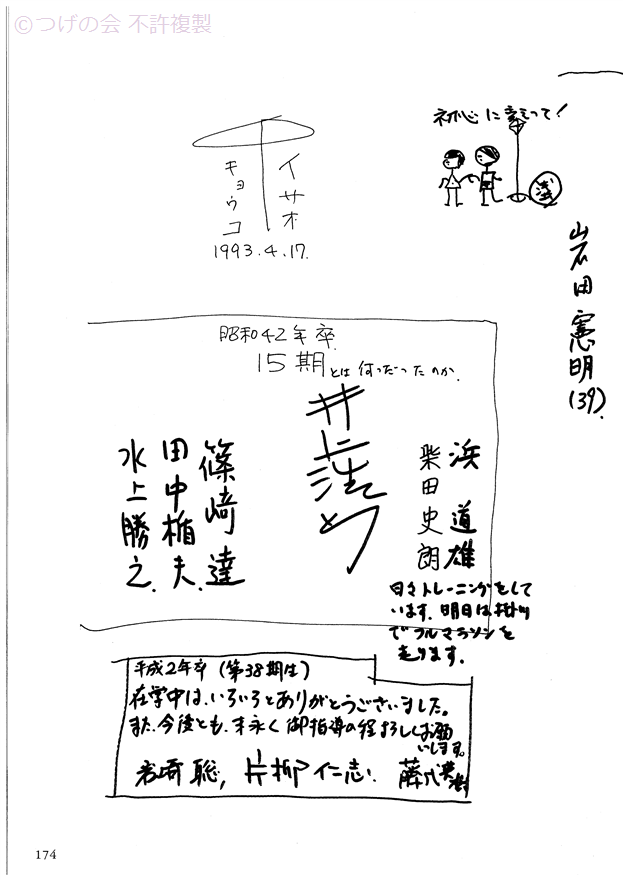 © つげの会 不許複製
初心に戻って!
イサオ
キョウコ
1993.4.17.
岩田憲明(39)
昭和42年卒.
15期とは何だったのか.
浜 道雄
柴田史朗
井上
篠﨑 達
田中楯夫.
水上勝之.
日々トレーニングをして
います.明日は掛川
でフルマラソンを
走ります.
平成2年卒(第38期生)
在学中は、いろいろとありがとうございました。
また、今後とも、末永く御指導の程よろしくお願
いします。
岩崎 聡, 片柳 仁志.
174